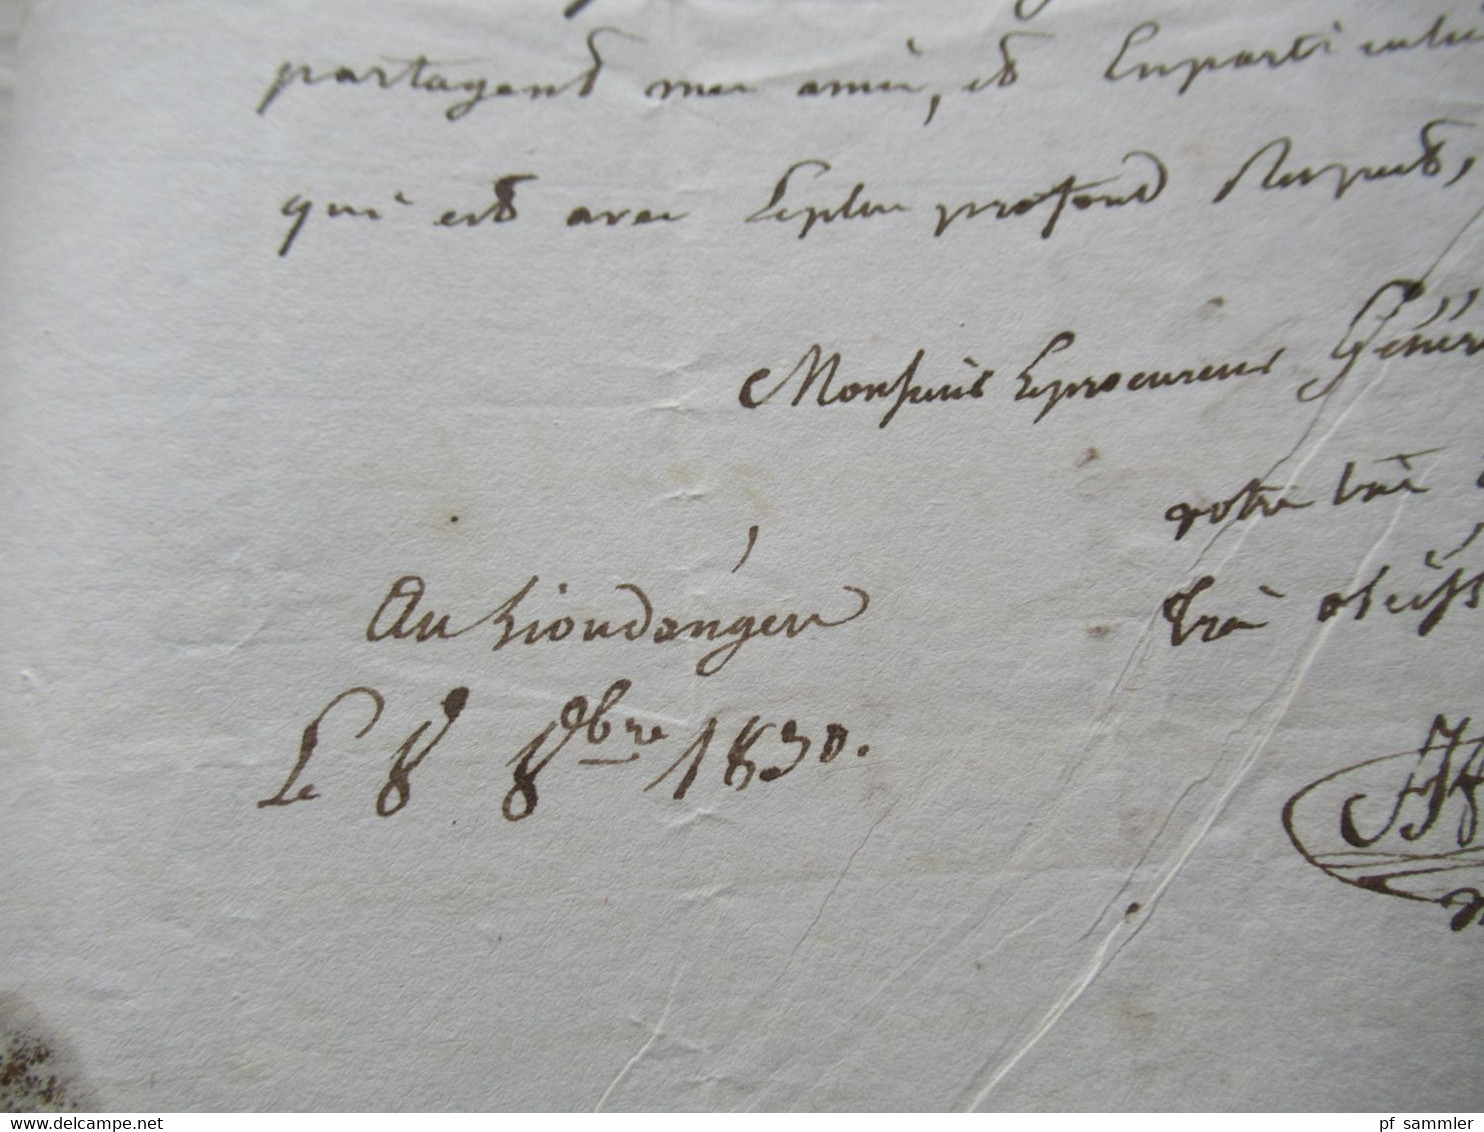 partagent mes amis, et Enparticulie
qui est avec Leplus profond Respect,
Monsieur Leprocureur Génér
votre très
Au Lioudangers
très obéiss
Le 8 8bre 1830.
www.delcampe.net
pf_sammler